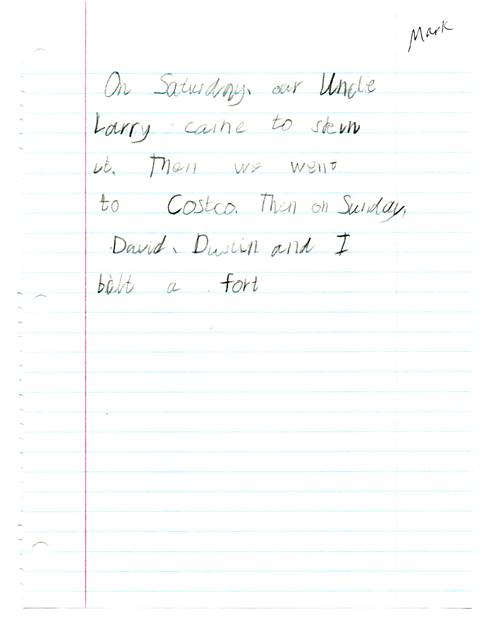 Mark
On Saturday, our Uncle
Larry came to
it. Then we went
to Costco. Then on Sunday,
David, Dustin and I
bilt a fort